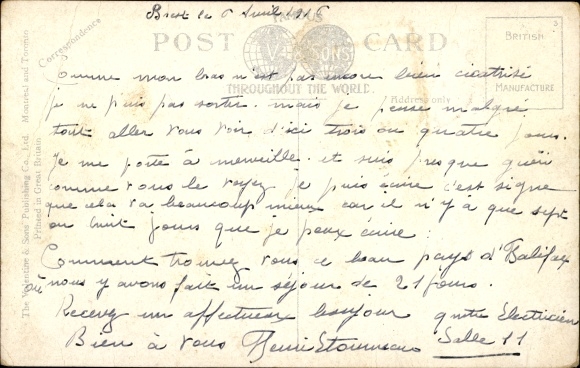 Brest le 6 Avril 1916
POST CARD
V SONS
THROUGHOUT THE WORLD.
Correspondence
Address only
BRITISH
MANUFACTURE
The Valentine & Sons' Publishing Co., Ltd. Montreal and Toronto
Printed in Great Britain
Comme mon bras n'est pas encore bien cicatrisé
je ne puis pas sortir. mais je pense malgré
tout aller vous voir d'ici trois ou quatre jours.
Je me porte à merveille et suis presque guéri
comme vous le voyez je puis écrire c'est signe
que cela va beaucoup mieux car il n'y a que sept
ou huit jours que je peux écrire.
Comment trouvez vous ce beau pays d'Halifax
où nous y avons fait un séjour de 21 jours.
Recevez un affectueux bonjour Electricien
Bien à vous Henri Salle 11